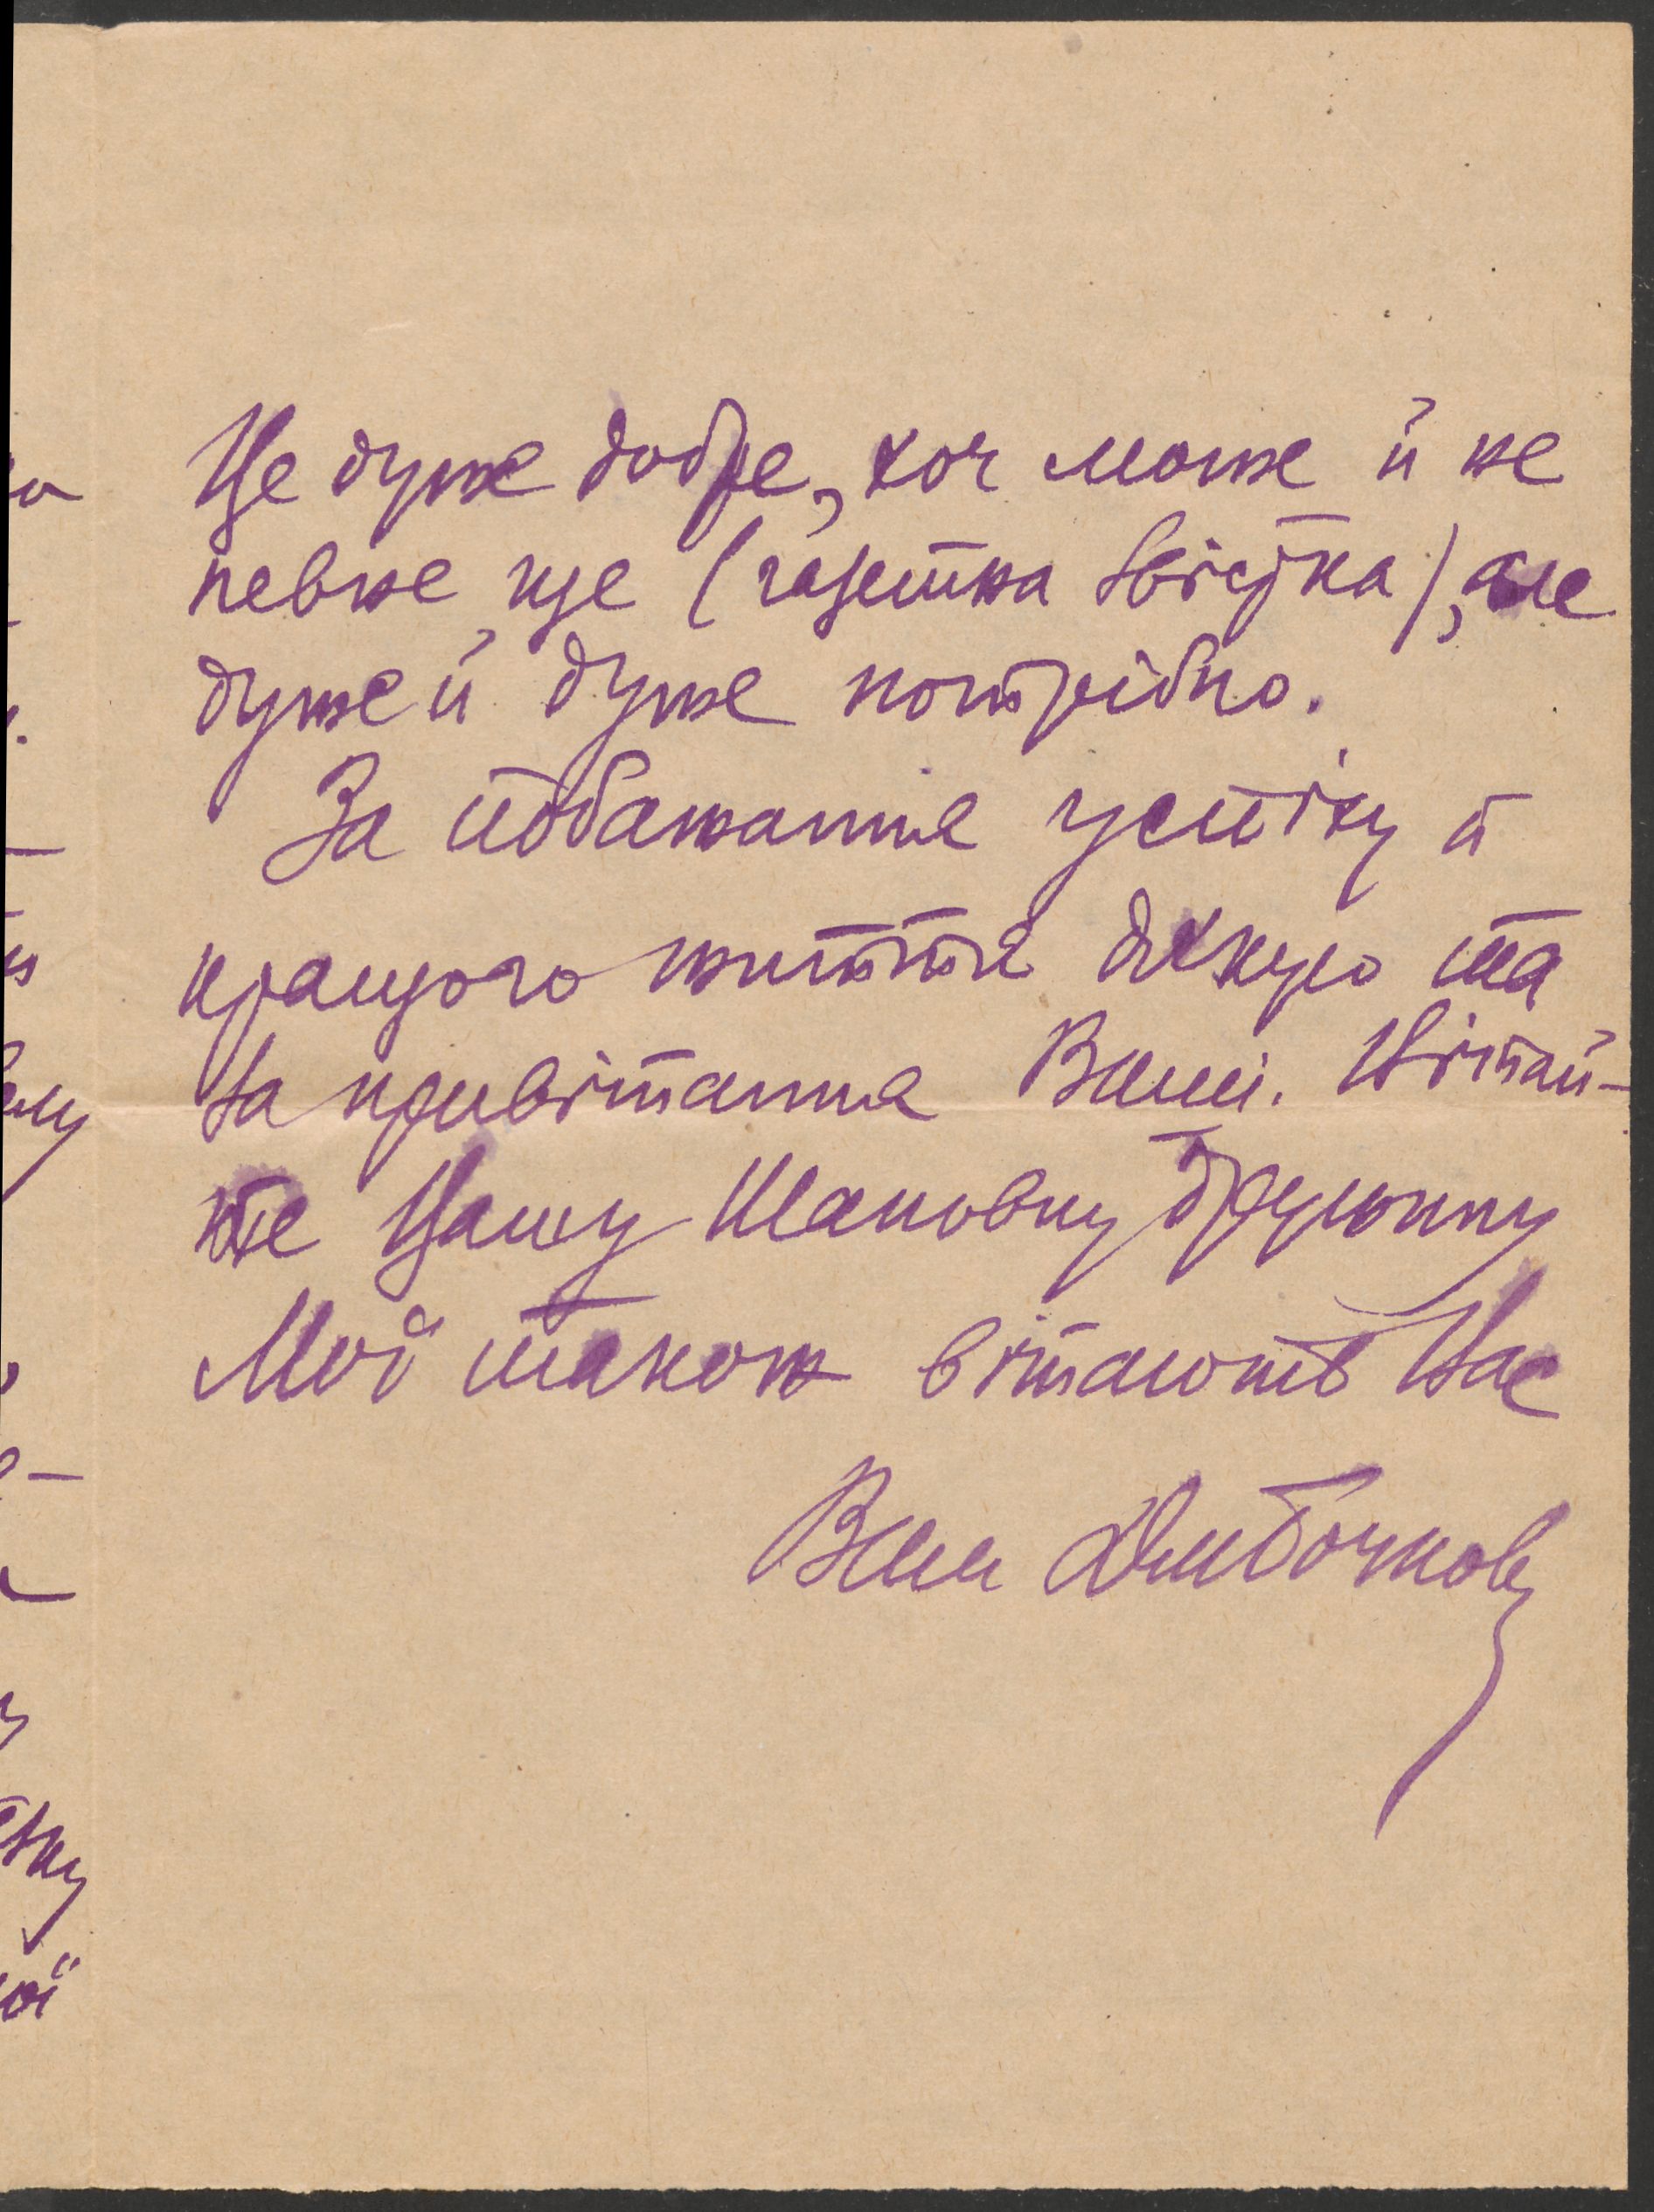 Це дуже добре, хоч може й не
певне ще (газетна звістка), але
дуже й дуже потрібно.
За побажання успіху й
кращого життя дякую та
за привітання Ваші. Вітай-
те Вашу Шановну дружину
Мої також вітають Вас
Ваш